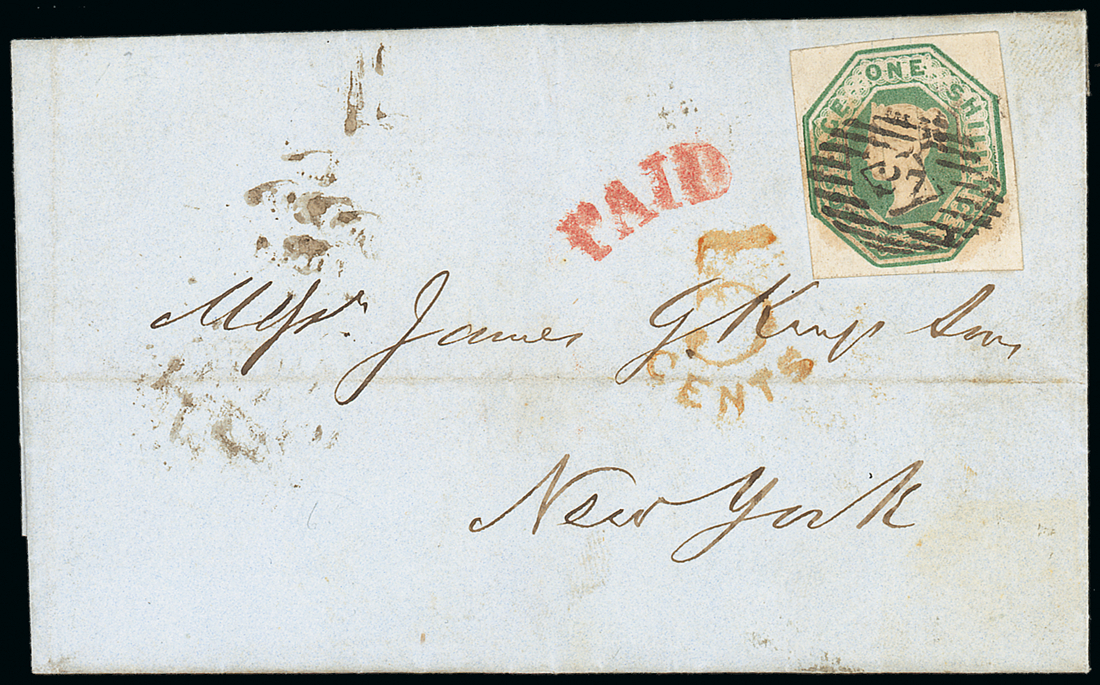 ONE SHILLING
PAID
5
CENTS
Messrs. James G. King & Sons
New York